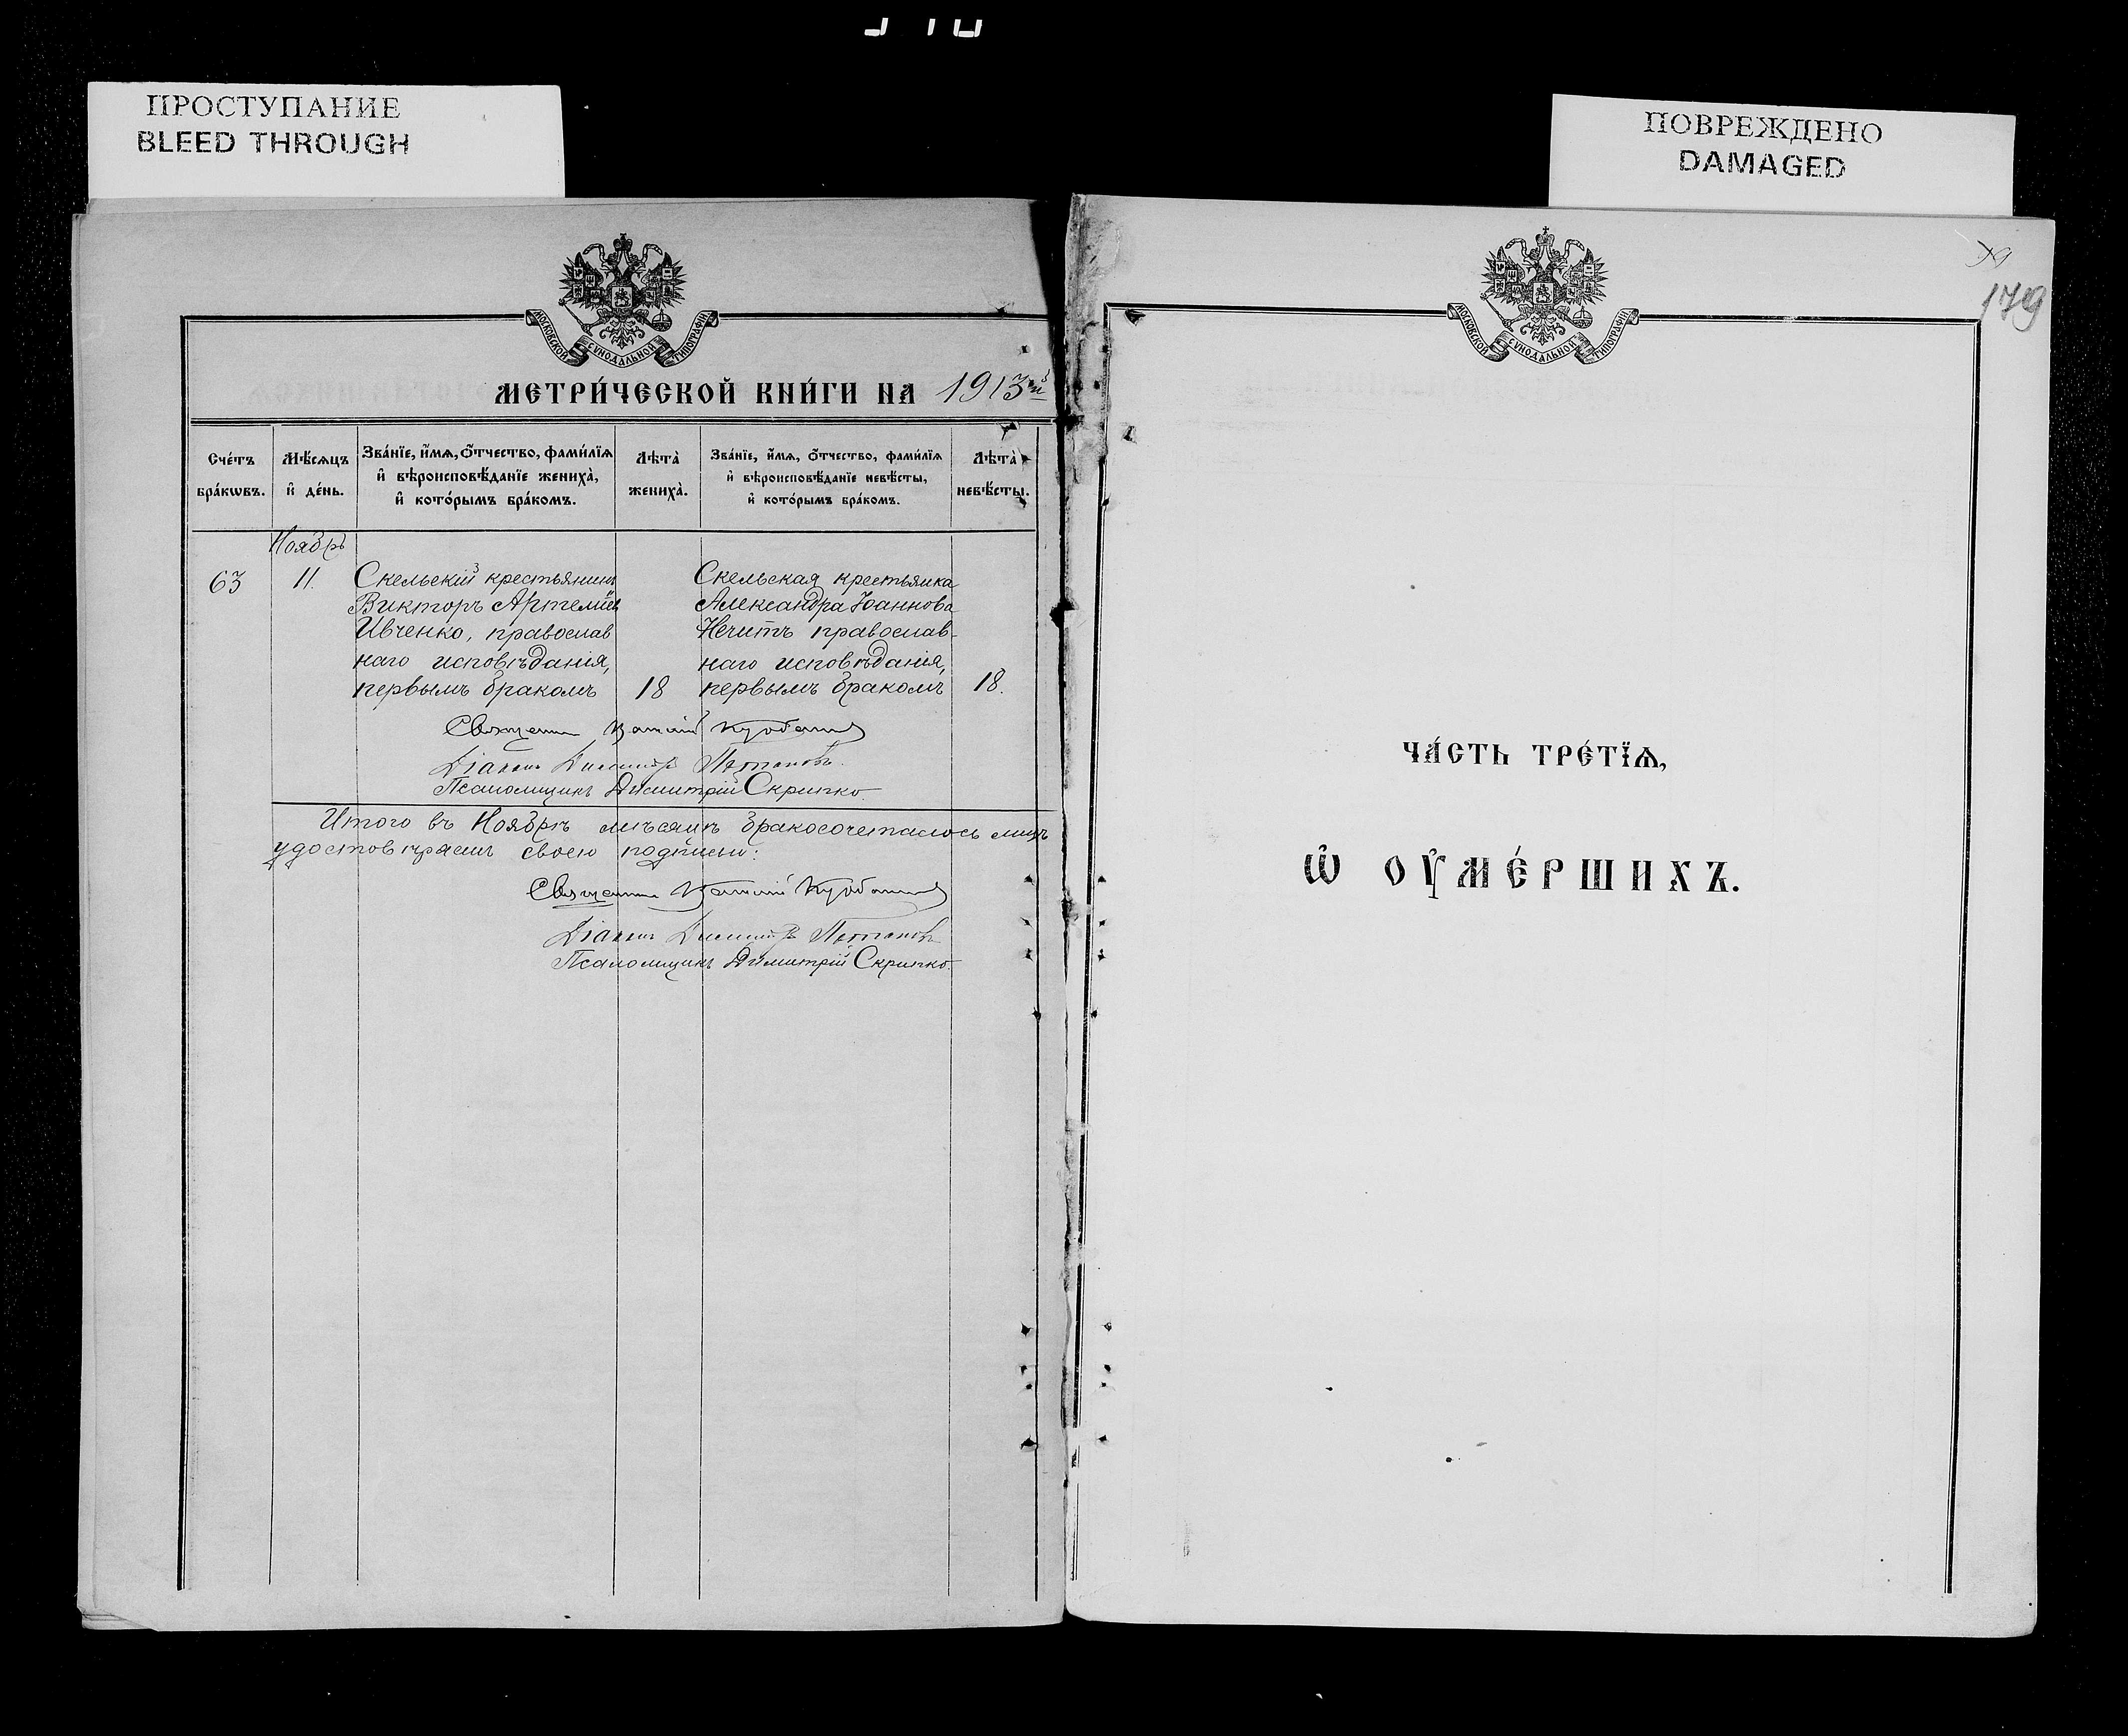 ПРОСТУПАНИЕ
BLEED THROUGH
ПОВРЕЖДЕНО
DAMAGED
МОСКОВСКОЙ СУНОДАЛЬНОЙ ТИПОГРАФІИ
МЕТРИ́ЧЕСКОЙ КНИ́ГИ НА 1913й
Сче́тъ бра́кωвъ.
Мѣ́сѧцъ и҆ де́нь.
Зва́нїе, и҆́мѧ, ѻ҆́тчество, фами́лїѧ и҆ вѣроисповѣ́данїе жениха̀, и҆ кото́рымъ бра́комъ.
Лѣта̀ жениха̀.
Зва́нїе, и҆́мѧ, ѻ҆́тчество, фами́лїѧ и҆ вѣроисповѣ́данїе невѣ́сты, и҆ кото́рымъ бра́комъ.
Лѣта̀ невѣ́сты.
Ноябрь
63
11.
Скельскій крестьянинъ
Викторъ Артеміевъ
Ивченко, православ
наго исповѣданія,
первымъ бракомъ
18
Скельская крестьянка
Александра Іоаннова
Нечитъ православ-
наго исповѣданія,
первымъ бракомъ
18.
Діаконъ Димитрій
Псаломщикъ Димитрій Скрипко.
Итого въ Ноябрѣ мѣсяцѣ бракосочеталось лицъ
удостовѣряемъ своею подписью:
Діаконъ Димитрій
Псаломщикъ Димитрій Скрипко.
МОСКОВСКОЙ СУНОДАЛЬНОЙ ТИПОГРАФІИ
179
ЧА́СТЬ ТРЕ́ТЇѦ,
Ѽ ОУ҆МЕ́РШИХЪ.